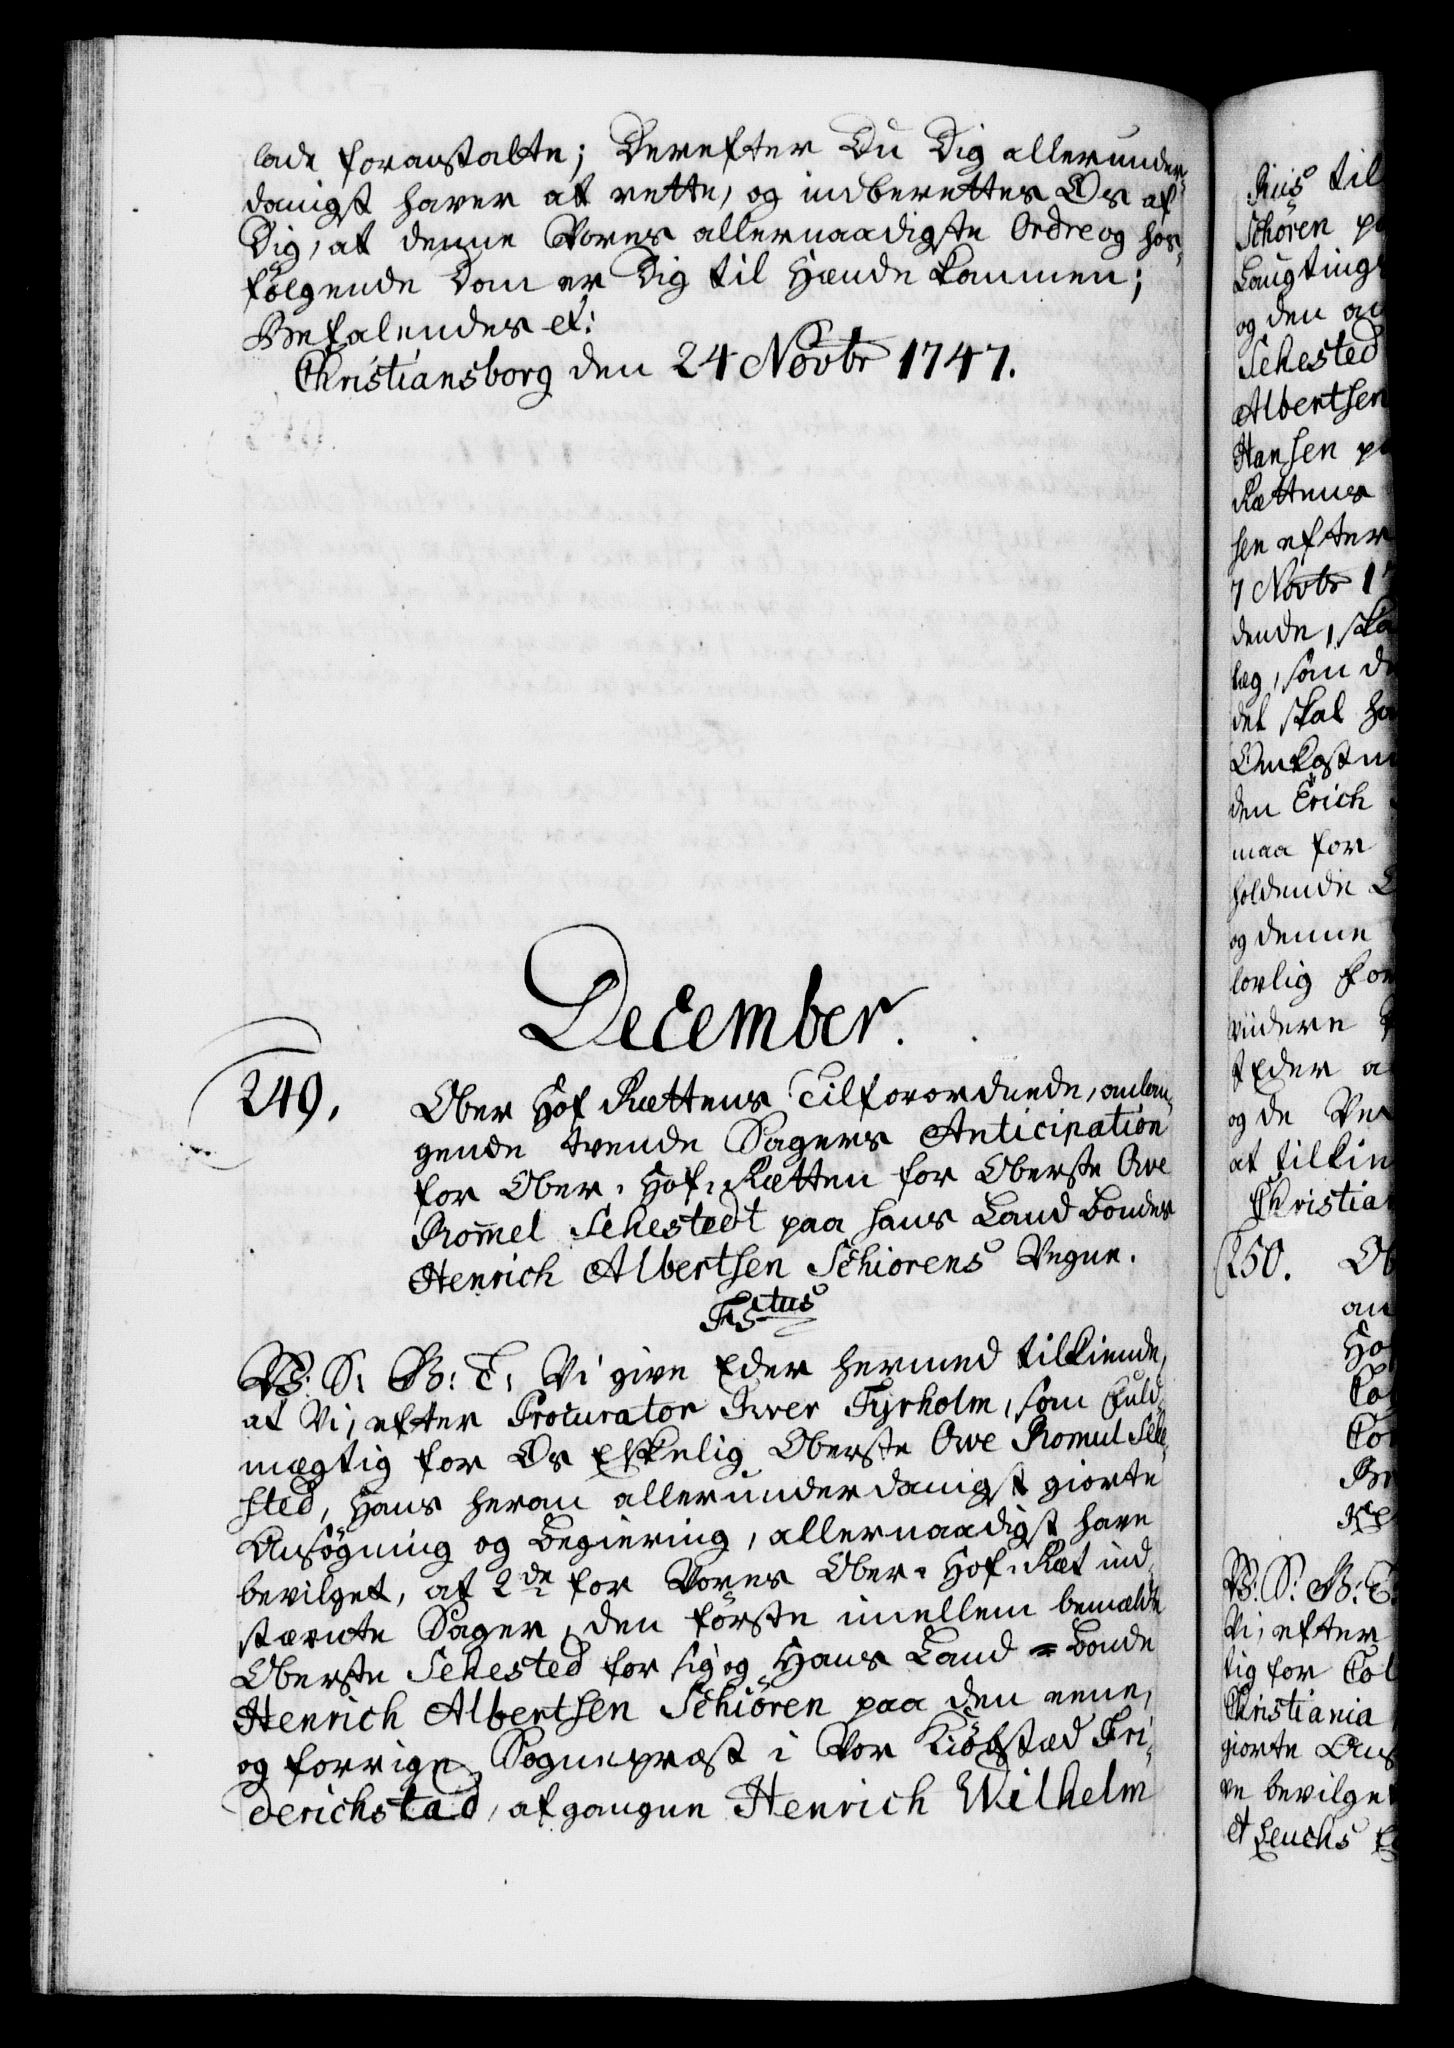 lade foranstalte; Derefter Du Dig allerunder-
danigst haver at rette, og indberettes Os af
Dig, at denne Vores allernaadigste Ordre og hos-
følgende Dom er Dig til Hænde kommen;
Befalendes et:
Christiansborg den 24 Novbr 1747.
December.
249.
Ober Hof Rettens Tilforordnede, anlan-
gende tvende Sagers Anticipation
for Ober-Hof-Retten for Oberste Ove
Romel Sehestedt paa hans Land Bondes
Henrich Albertsen Schiørens Vegne.
V: S: G: T: Vi give Eder hermed tilkiende,
at Vi, efter Procurator Iver Tyrholm, som Fuld-
mægtig for Os Elskelig Oberste Ove Romul Sehe-
sted, Hans herom allerunderdanigst giorte
Ansøgning og Begiering, allernaadigst have
bevilget, at 2de for Vores Ober-Hof-Ret ind-
stævnte Sager, den første imellem bemælde
Oberste Sehested for sig og Hans Land-Bonde
Henrich Albertsen Schiøren paa den eene,
og forrige Sognepræst i Vor Kiøbstæd Fri-
derichstad, afgangne Henrich Wilhelm
Riis til
Schøren
Laugting
og den
Sehested
Albertsen
Hansen
Rettens
sen efter
7 Novbr
dende,
læg, som
det skal
den Erich
maa for
holdende
og denne
lovlig
viidere
og de
at
250.
V: S: G: T:
Vi, efter
tig for
Christiania
giorte
ve bevilget